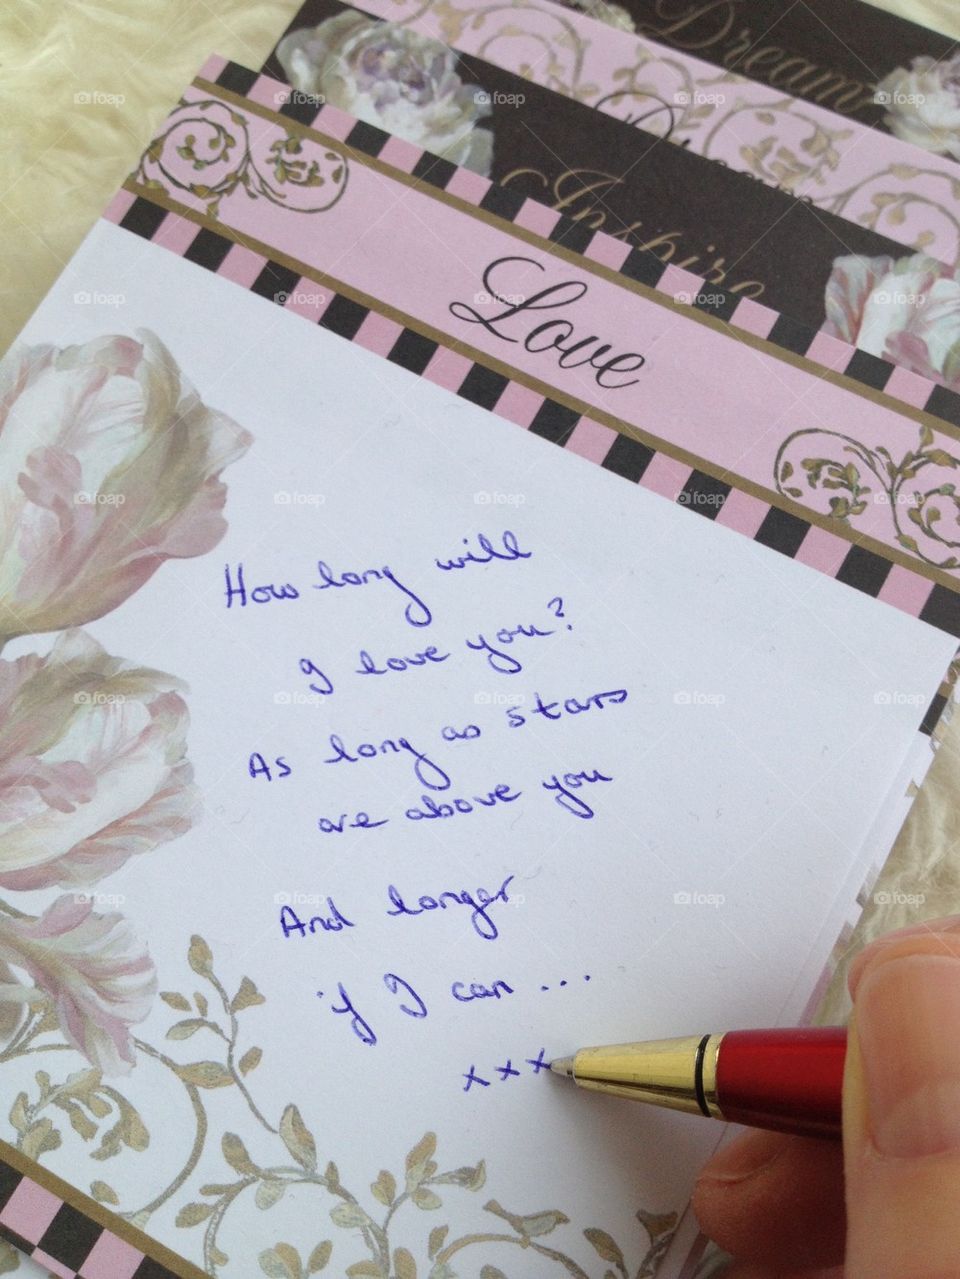 Dream
Inspire
Love
How long will
I love you?
As long as stars
are above you
And longer
if I can...
xxx